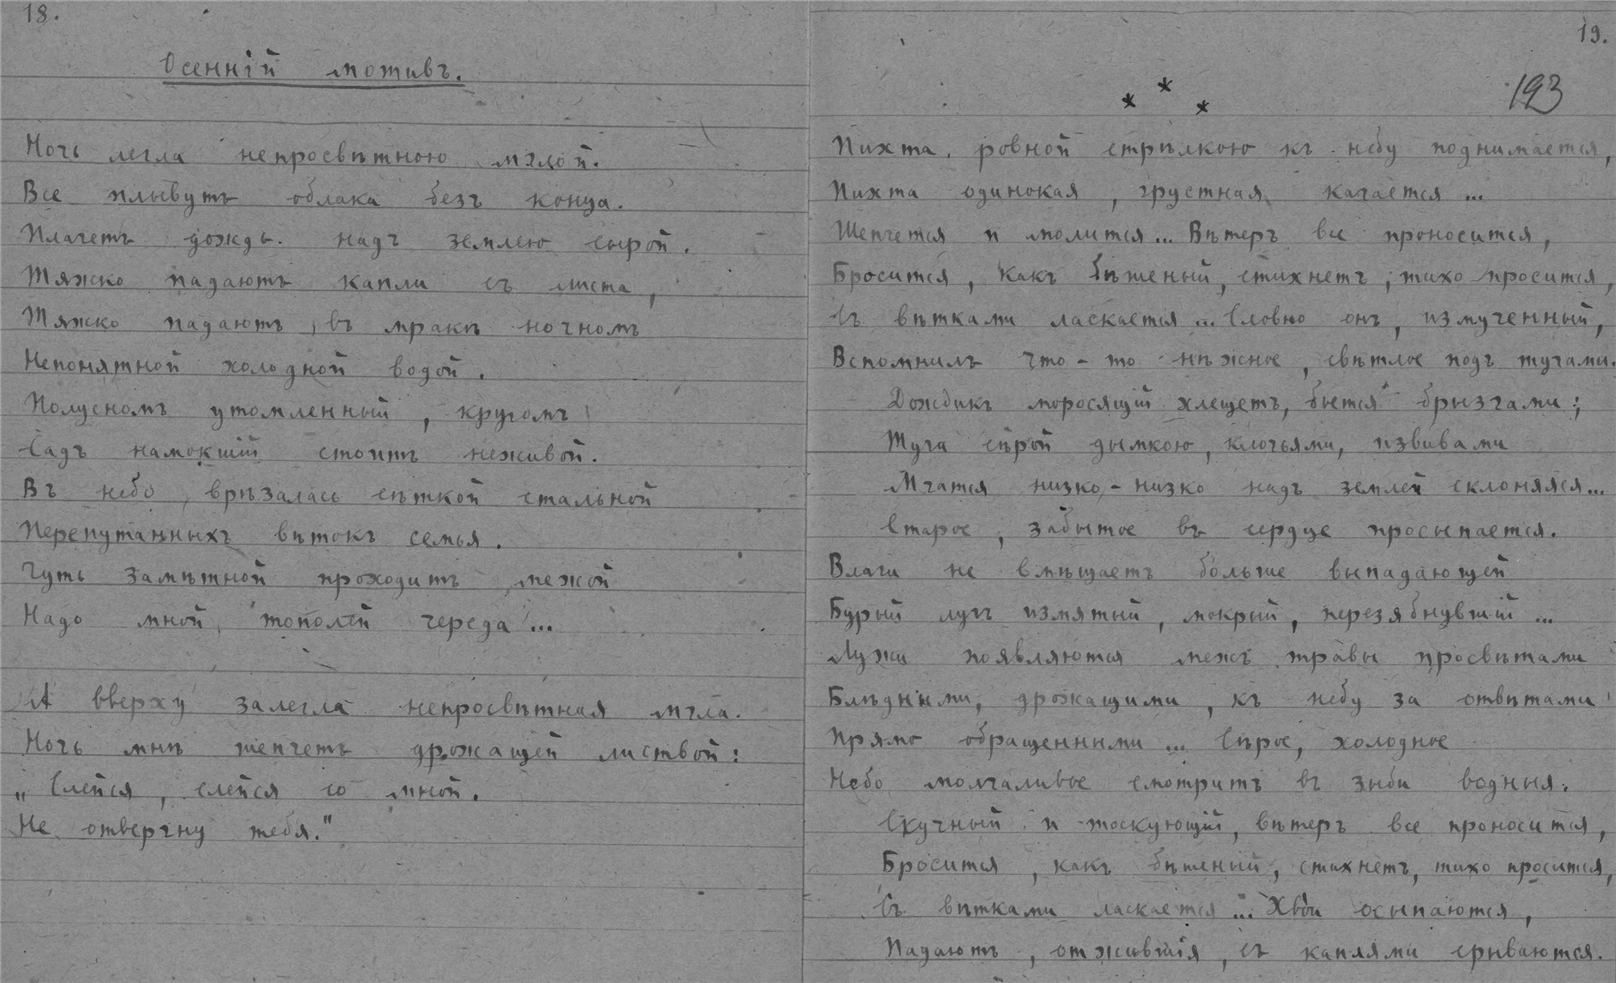 18.
Осеннiй мотивъ.
Ночь легла непросвѣтною мглой.
Все плывутъ облака безъ конца.
Плачетъ дождь надъ землею сырой.
Тяжко падаютъ капли съ листа,
Тяжко падаютъ, въ мракѣ ночномъ
Непонятной холодной водой.
Полусномъ утомленный, кругомъ
Садъ намокшiй стоитъ неживой.
Въ небо врѣзалась сѣткой стальной
Перепутанныхъ вѣтокъ семья.
Чуть замѣтной проходитъ межой
Надо мной тополей череда...
А вверху залегла непросвѣтная мгла.
Ночь мнѣ шепчетъ дрожащей листвой:
„Слейся, слейся со мной.
Не отвергну тебя."
19.
193
* * *
Пихта ровной стрѣлкою къ небу поднимается,
Пихта одинокая, грустная качается...
Шепчется и молится... Вѣтеръ все проносится,
Бросится, какъ бѣшеный, стихнетъ, тихо просится,
Съ вѣтками ласкается... Словно онъ, измученный,
Вспомнилъ что-то нѣжное, свѣтлое подъ тучами.
Дождикъ моросящiй хлещетъ, бьется брызгами;
Туча сѣрой дымкою, клочьями, извивами
Мчатся низко-низко надъ землей склоняяся...
Старое, забытое въ сердце просыпается.
Влаги не вмѣщаетъ больше выпадающей
Бурый лугъ измятый, мокрый, перезябнувшiй...
Лужи появляются межъ травы просвѣтами
Блѣдными, дрожащими, къ небу за отвѣтами
Прямо обращенными... Сѣрое, холодное
Небо молчаливое смотритъ въ зыби водныя.
Скучный и тоскующiй, вѣтеръ все проносится,
Бросится, какъ бѣшеный, стихнетъ, тихо просится,
Съ вѣтками ласкается... Хвои осыпаются,
Падаютъ, отжившiя, съ каплями срываются.